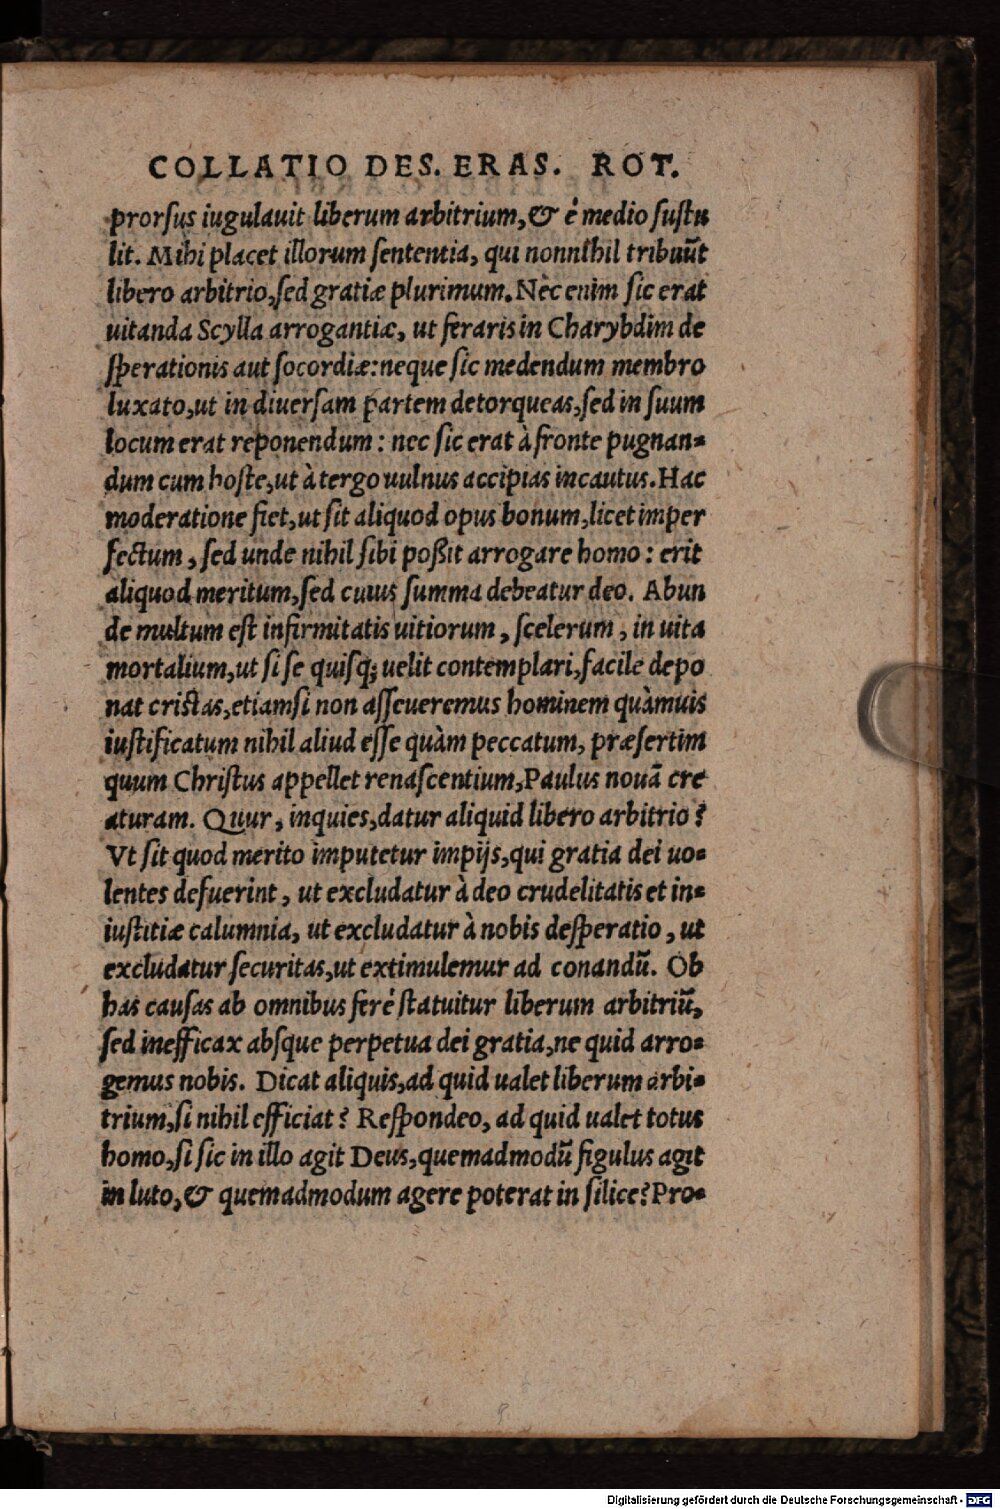 COLLATIO DES. ERAS. ROT.
prorſus iugulauit liberum arbitrium, & è medio ſuſtu
lit. Mihi placet illorum ſententia, qui nonnihil tribuūt
libero arbitrio, ſed gratiæ plurimum. Nec enim ſic erat
uitanda Scylla arrogantiæ, ut feraris in Charybdim de
ſperationis aut ſocordiæ: neque ſic medendum membro
luxato, ut in diuerſam partem detorqueas, ſed in ſuum
locum erat reponendum: nec ſic erat à fronte pugnan-
dum cum hoſte, ut à tergo uulnus accipias incautus. Hac
moderatione fiet, ut ſit aliquod opus bonum, licet imper
fectum, ſed unde nihil ſibi poßit arrogare homo: erit
aliquod meritum, ſed cuius ſumma debeatur deo. Abun
de multum eſt infirmitatis uitiorum, ſcelerum, in uita
mortalium, ut ſi ſe quiſq; uelit contemplari, facile depo
nat criſtas, etiamſi non aſſeueremus hominem quàmuis
iuſtificatum nihil aliud eſſe quàm peccatum, præſertim
quum Chriſtus appellet renaſcentium, Paulus nouā cre
aturam. Quur, inquies, datur aliquid libero arbitrio?
Vt ſit quod merito imputetur impijs, qui gratia dei uo-
lentes defuerint, ut excludatur à deo crudelitatis et in-
iuſtitiæ calumnia, ut excludatur à nobis deſperatio, ut
excludatur ſecuritas, ut extimulemur ad conandū. Ob
has cauſas ab omnibus ferè ſtatuitur liberum arbitriū,
ſed inefficax abſque perpetua dei gratia, ne quid arro-
gemus nobis. Dicat aliquis, ad quid ualet liberum arbi-
trium, ſi nihil efficiat? Reſpondeo, ad quid ualet totus
homo, ſi ſic in illo agit Deus, quemadmodū figulus agit
in luto, & quemadmodum agere poterat in ſilice? Pro-
Digitalisierung gefördert durch die Deutsche Forschungsgemeinschaft - DFG